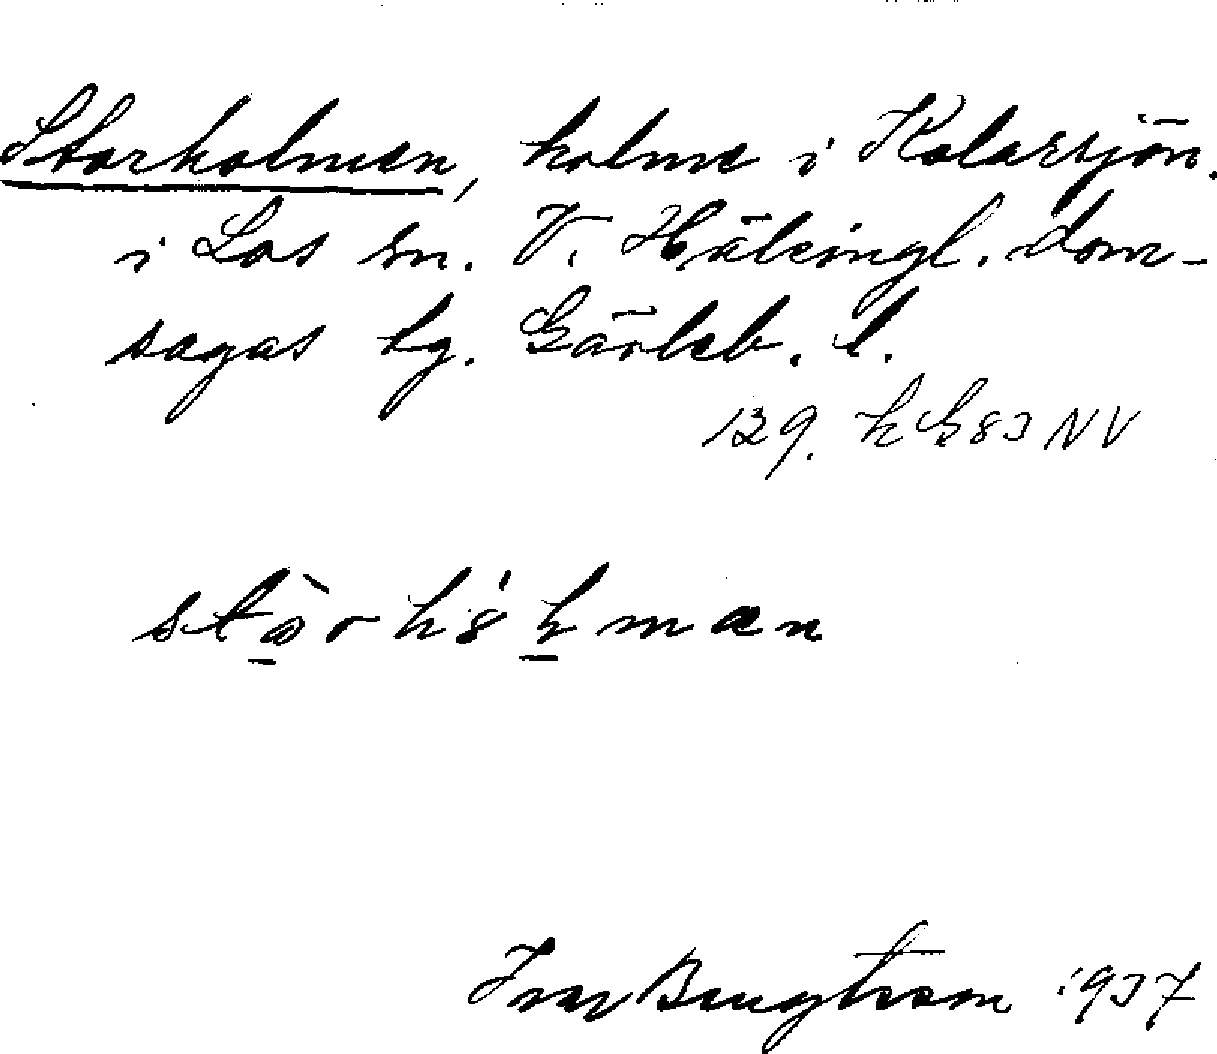 Storholmen, holme i Kolarsjön.
i Los sn. V. Hälsingl. dom-
sagas tg. Gävleb. l.
129. k G 83 NV
Ivar Bengtsson 1937